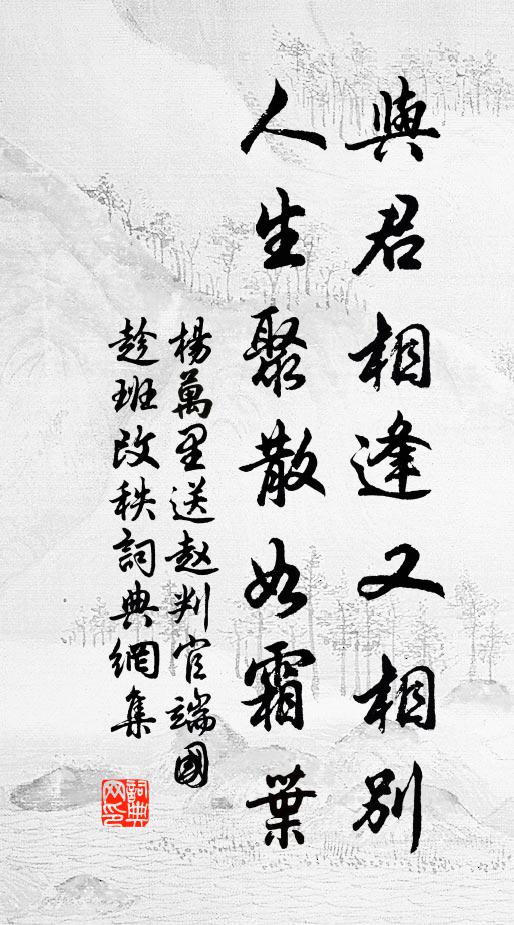 與君相逢又相別
人生聚散如霜葉
楊萬里送趙判官端國
趁班改秩詞典網集
詞典網印